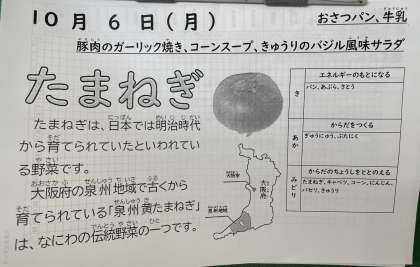 10月 6日(月)
おさつパン、牛乳
豚肉のガーリック焼き、コーンスープ、きゅうりのバジル風味サラダ
たまねぎ
たまねぎは、日本では明治時代
から育てられていたといわれてい
る野菜です。
大阪府の泉州地域で古くから
育てられている「泉州黄たまねぎ」
は、なにわの伝統野菜の一つです。
大阪市
大阪府
泉州地域
エネルギーのもとになる
き
パン、あぶら、さとう
からだをつくる
あか
ぎゅうにゅう、ぶたにく
からだのちょうしをととのえる
みどり
たまねぎ、キャベツ、コーン、にんじん、
パセリ、きゅうり